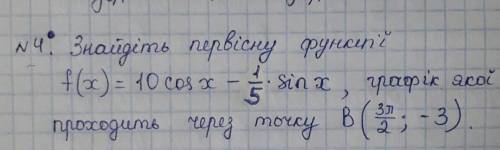 №4. Знайдіть первісну функції
f(x) = 10 cos x - 1/5 · sin x, графік якої
проходить через точку B(3π/2; -3).